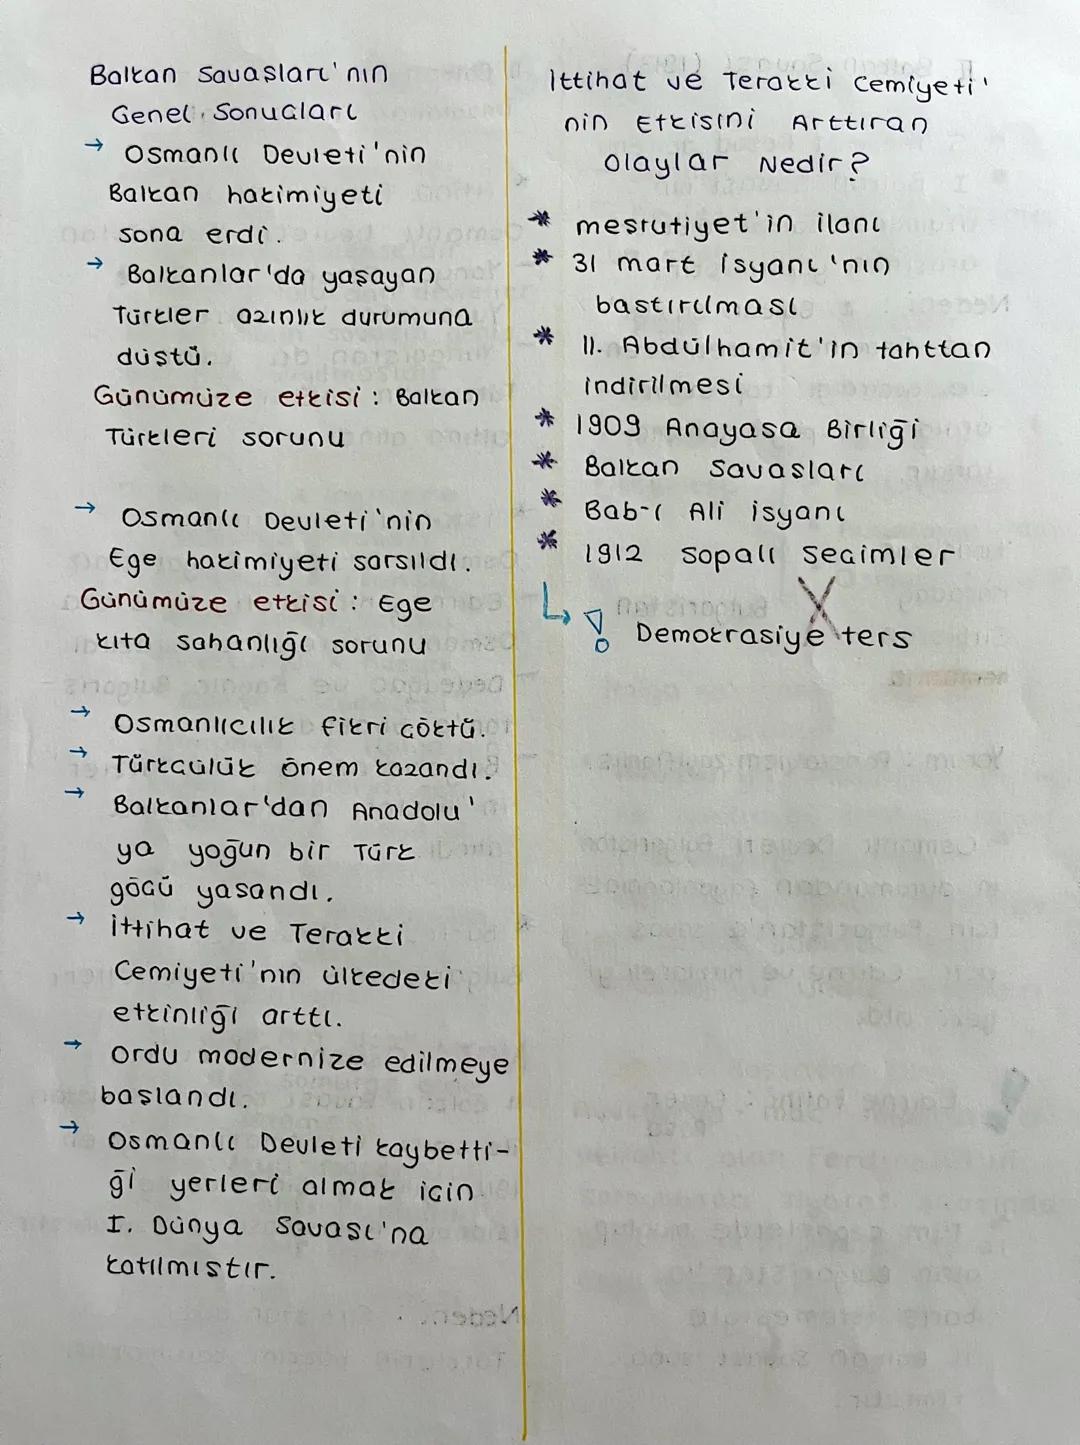 Balkan Savaşları'nın
Genel Sonuçları
→ Osmanlı Devleti'nin
Balkan hakimiyeti
sona erdi.
→ Balkanlar'da yaşayan
Türkler azınlık durumuna
düştü.
Günümüze etkisi: Balkan
Türkleri sorunu
→ Osmanlı Devleti'nin
Ege hakimiyeti sarsıldı.
Günümüze etkisi: Ege
kıta sahanlığı sorunu
→ Osmanlıcılık fikri çöktü.
→ Türkçülük önem kazandı.
→ Balkanlar'dan Anadolu'
ya yoğun bir Türk
göçü yaşandı.
→ İttihat ve Terakki
Cemiyeti'nin ülkedeki
etkinliği arttı.
→ Ordu modernize edilmeye
başlandı.
→ Osmanlı Devleti kaybetti-
ği yerleri almak için
I. Dünya Savaşı'na
katılmıştır.
İttihat ve Terakki Cemiyeti'
nin Etkisini Arttıran
Olaylar Nedir?
* meşrutiyet'in ilanı
* 31 mart isyanı'nın
bastırılması
* II. Abdülhamit'in tahttan
indirilmesi
* 1909 Anayasa Birliği
* Balkan Savaşları
* Bab-ı Ali isyanı
* 1912 Sopalı Seçimler
↳ ! Demokrasiye ters